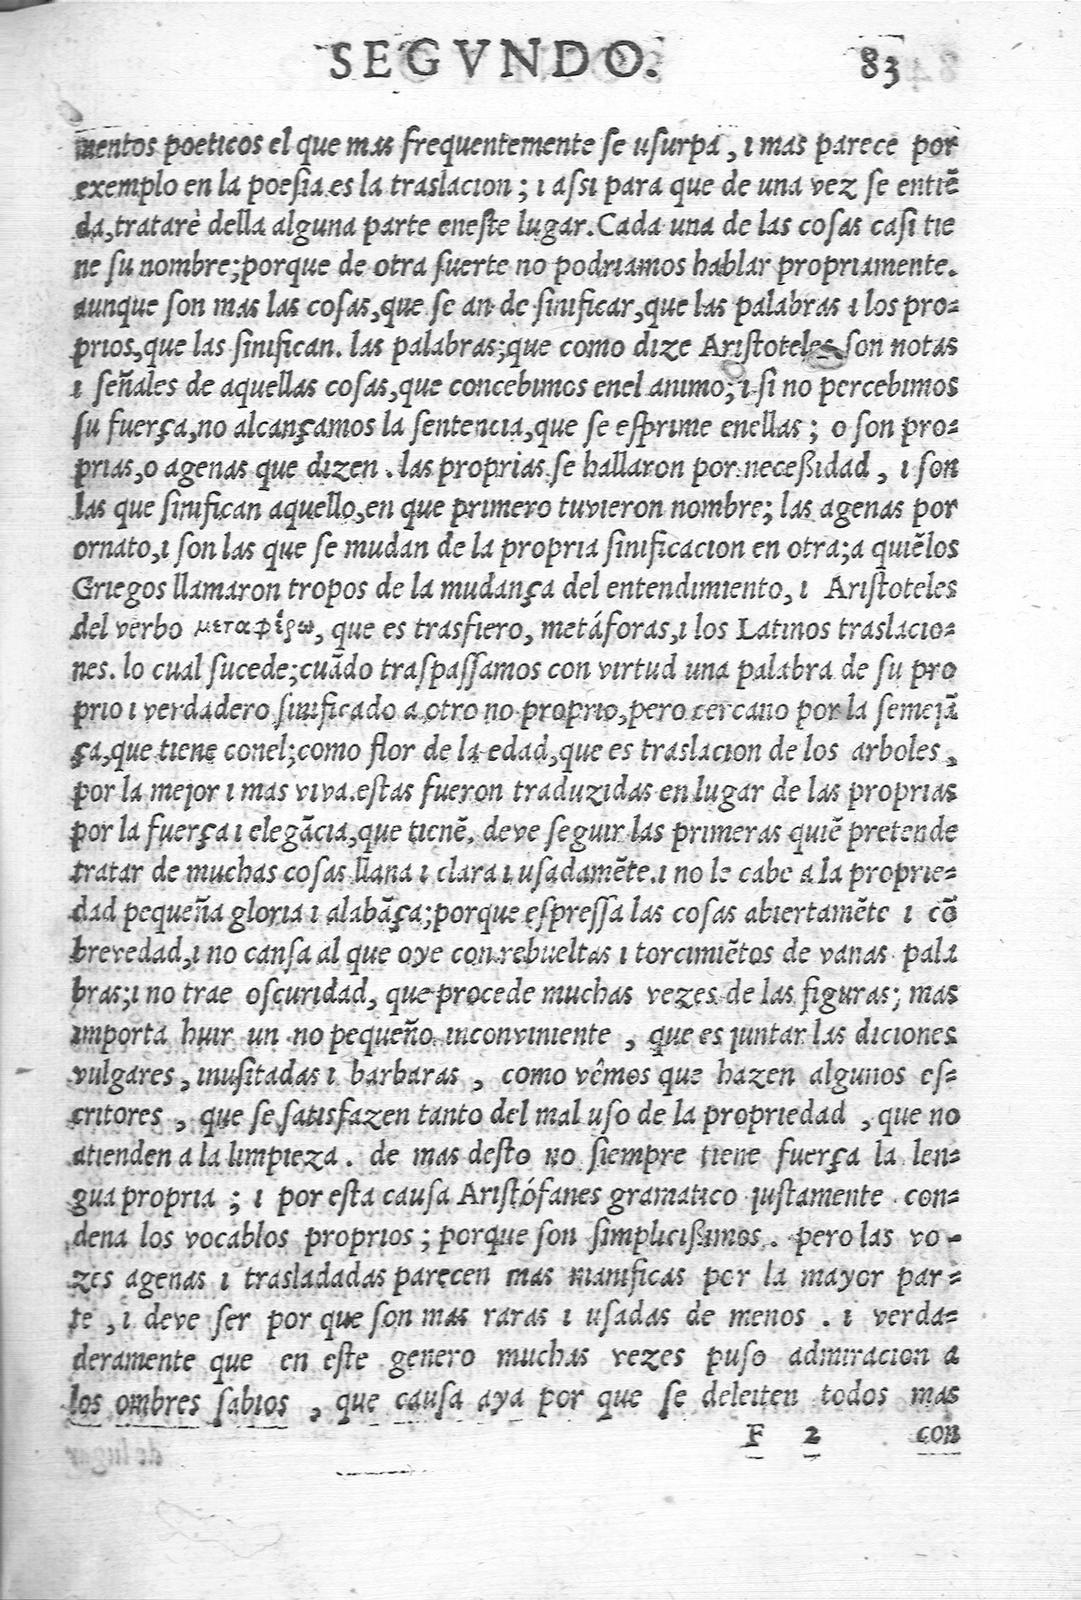 SEGVNDO. 83
mentos poeticos el que mas frequentemente se usurpa, i mas parece por
exemplo en la poesia es la traslacion; i assi para que de una vez se entiẽ
da, tratarè della alguna parte eneste lugar. Cada una de las cosas casi tie
ne su nombre; porque de otra suerte no podriamos hablar propriamente.
aunque son mas las cosas, que se an de sinificar, que las palabras i los pro=
prios, que las sinifican. las palabras; que como dize Aristoteles son notas
i señales de aquellas cosas, que concebimos enel animo; i si no percebimos
su fuerça, no alcançamos la sentencia, que se esprime enellas; o son pro=
prias, o agenas que dizen. las proprias se hallaron por neceßidad, i son
las que sinifican aquello, en que primero tuvieron nombre; las agenas por
ornato, i son las que se mudan de la propria sinificacion en otra; a quiẽ los
Griegos llamaron tropos de la mudança del entendimiento, i Aristoteles
del verbo μεταφέρω, que es trasfiero, metáforas, i los Latinos traslacio=
nes. lo cual sucede; cuãdo traspassamos con virtud una palabra de su pro
prio i verdadero sinificado a otro no proprio, pero cercano por la semejã
ça, que tiene conel; como flor de la edad, que es traslacion de los arboles,
por la mejor i mas viva. estas fueron traduzidas en lugar de las proprias
por la fuerça i elegãcia, que tienẽ. deve seguir las primeras quiẽ pretende
tratar de muchas cosas llana i clara i usadamẽte. i no le cabe a la proprie=
dad pequeña gloria i alabãça; porque espressa las cosas abiertamẽte i cõ
brevedad, i no cansa al que oye con rebueltas i torcimiẽtos de vanas pala
bras; i no trae oscuridad, que procede muchas vezes de las figuras; mas
importa huir un no pequeño inconviniente, que es juntar las diciones
vulgares, inusitadas i barbaras, como vêmos que hazen algunos es=
critores, que se satisfazen tanto del mal uso de la propriedad, que no
atienden a la limpieza. de mas desto no siempre tiene fuerça la len=
gua propria; i por esta causa Aristófanes gramatico justamente con=
dena los vocablos proprios; porque son simplicißimos. pero las vo-
zes agenas i trasladadas parecen mas manificas por la mayor par=
te, i deve ser por que son mas raras i usadas de menos. i verda=
deramente que en este genero muchas vezes puso admiracion a
los ombres sabios, que causa aya por que se deleiten todos mas
F 2 con